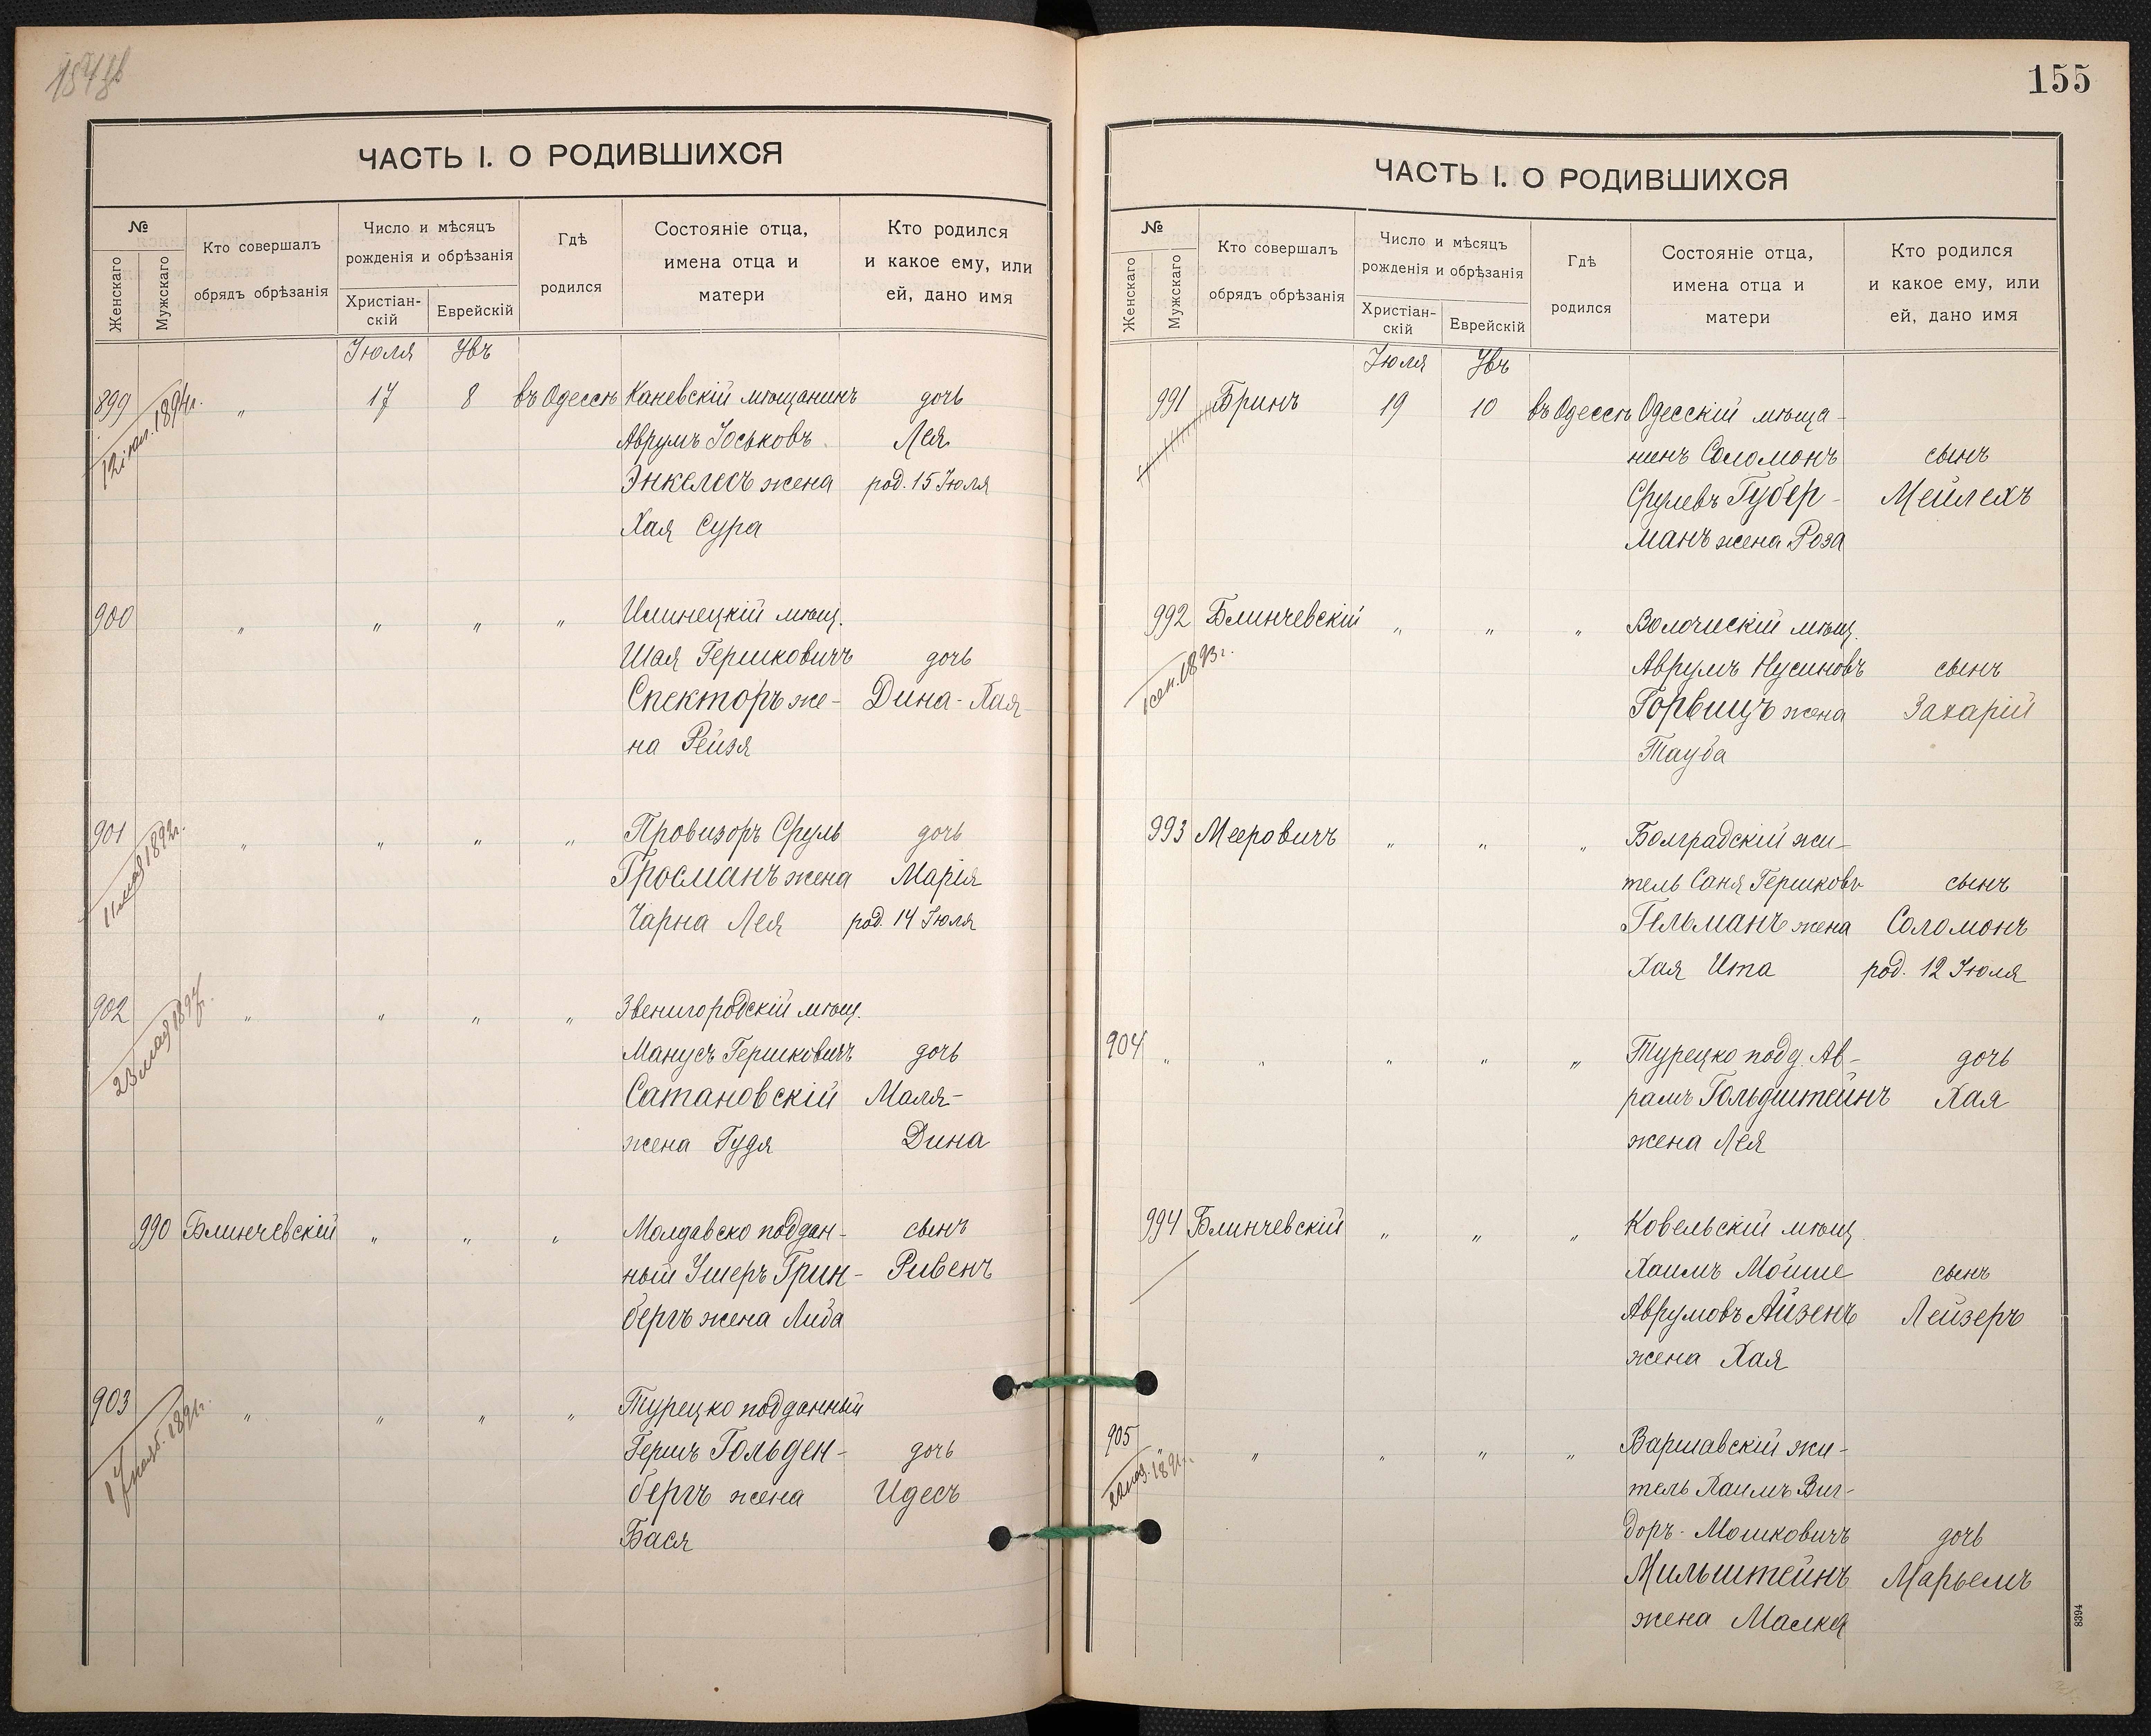 ЧАСТЬ I. О РОДИВШИХСЯ
№
Женскаго
Мужскаго
Кто совершалъ
обрядъ обрѣзанія
Число и мѣсяцъ
рожденія и обрѣзанія
Христіан-
скій
Еврейскій
Гдѣ
родился
Состояніе отца,
имена отца и
матери
Кто родился
и какое ему, или
ей, дано имя
Іюля Увъ
899 " 17 8 въ Одессѣ Каневскій мѣщанинъ дочь
Аврумъ Іоськовъ Лея
Энкелесъ жена род. 15 Іюля
Хая Сура
900 " " " " Илинецкій мѣщ.
Шая Гершковичъ дочь
Спекторъ же- Дина-Хая
на Рейзя
901 " " " " Провизоръ Сруль дочь
11 мая 1892г.
Гросманъ жена Марія
Чарна Лея род. 14 Іюля
902 " " " " Звенигородскій мѣщ.
Манусъ Гершковичъ дочь
Сатановскій Маля-
жена Гудя Дина
990 Блинчевскій " " " Молдавско поддан- сынъ
ный Ушеръ Грин- Ривенъ
бергъ жена Либа
903 " " " " Турецко подданный
Гершъ Гольден- дочь
бергъ жена Идесъ
Бася
155
ЧАСТЬ I. О РОДИВШИХСЯ
№
Женскаго
Мужскаго
Кто совершалъ
обрядъ обрѣзанія
Число и мѣсяцъ
рожденія и обрѣзанія
Христіан-
скій
Еврейскій
Гдѣ
родился
Состояніе отца,
имена отца и
матери
Кто родился
и какое ему, или
ей, дано имя
Іюля Увъ
991 Бринъ 19 10 въ Одессѣ Одесскій мѣща-
нинъ Соломонъ сынъ
Срулевъ Губер- Мейлехъ
манъ жена Роза
992 Блинчевскій " " " Волочискій мѣщ.
Аврумъ Нусиновъ сынъ
Горвицъ жена Захарій
Тауба
993 Мееровичъ " " " Болградскій жи-
тель Саня Гершковъ сынъ
Гельманъ жена Соломонъ
Хая Ита род. 12 Іюля
904 " " " " " Турецко подд. Ав- дочь
рамъ Гольдштейнъ Хая
жена Лея
994 Блинчевскій " " " Ковельскій мѣщ.
Хаимъ Мойше сынъ
Аврумовъ Айзенъ Лейзеръ
жена Хая
905 " " " " " Варшавскій жи-
тель Хаимъ Виг-
доръ-Мошковичъ дочь
Мильштейнъ Марьемъ
жена Малка
8394